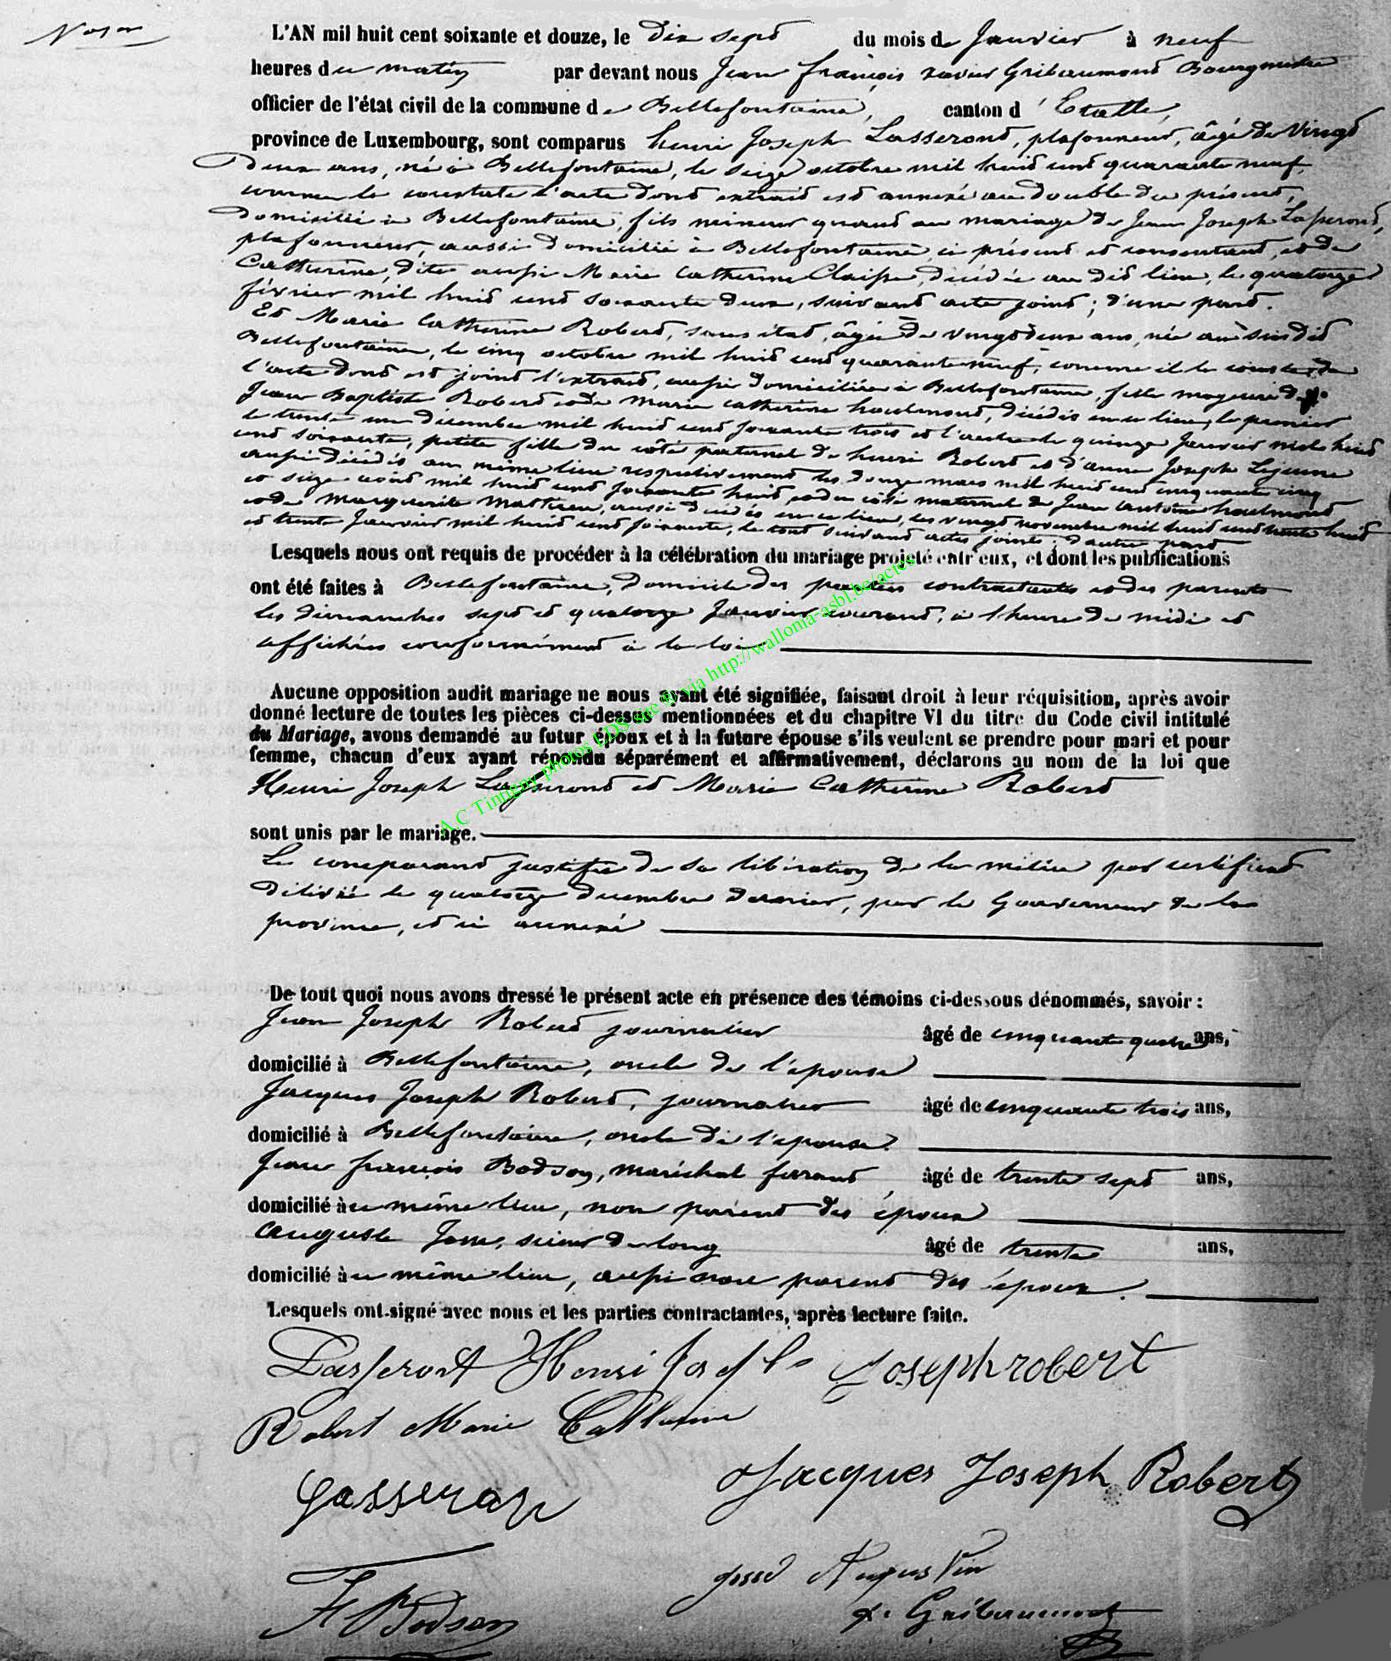 L'AN mil huit cent soixante et douze, le Dix sept du mois de Janvier à neuf
heures du matin par devant nous Jean françois xavier Gribaumont Bourgmestre
officier de l'état civil de la commune de Bellefontaine, canton d'Etalle,
province de Luxembourg, sont comparus henri Joseph Lasseront, plafonneur, âgé de Vingt
Deux ans, né à Bellefontaine, le seize octobre mil huit cent quarante neuf,
comme le constate l'acte dont extrait est annexé au double du présent,
domicilié à Bellefontaine, fils mineur quand au mariage de Jean Joseph Lasseront,
plafonneur, aussi domicilié à Bellefontaine, ci présent et consentant, et de
Catherine, dite aussi Marie Catherine Claisse, décédée au dit lieu, le quatorze
février mil huit cent soixante deux, suivant acte joint; d'une part.
Et Marie Catherine Robert, sans état, âgée de vingt deux ans, née aussi au dit
Bellefontaine, le cinq octobre mil huit cent quarante neuf, comme il le conste de
l'acte dont est joint l'extrait, aussi domiciliée à Bellefontaine, fille majeure de
Jean Baptiste Robert et de Marie Catherine houlmont, décédés en ce lieu, le premier
le trente un décembre mil huit cent soixante trois et l'autre le quinze Janvier mil huit
cent soixante, petite fille du côté paternel de henri Robert et d'anne Joseph Lejeune
aussi décédés au même lieu respectivement les douze mars mil huit cent cinquante cinq
et seize août mil huit cent soixante huit, et du côté maternel de Jean antoine houlmont
et de Marguerite Mathieu, aussi décédés en ce lieu, les vingt novembre mil huit cent trente huit
et trente Janvier mil huit cent soixante, le tout suivant actes joints; d'autre part
Lesquels nous ont requis de procéder à la célébration du mariage projeté entr'eux, et dont les publications
ont été faites à Bellefontaine, domicile des parties contractantes et des parents
les dimanches sept et quatorze Janvier courant, à l'heure de midi et
affichées conformément à la loi
Aucune opposition audit mariage ne nous ayant été signifiée, faisant droit à leur réquisition, après avoir
donné lecture de toutes les pièces ci-dessus mentionnées et du chapitre VI du titre du Code civil intitulé
du Mariage, avons demandé au futur époux et à la future épouse s'ils veulent se prendre pour mari et pour
femme, chacun d'eux ayant répondu séparément et affirmativement, déclarons au nom de la loi que
Henri Joseph Lasseront et Marie Catherine Robert
sont unis par le mariage.
Le comparant justifie de sa libération de la milice par certificat
délivré le quatorze décembre dernier, par le Gouverneur de la
province, et ci annexé
De tout quoi nous avons dressé le présent acte en présence des témoins ci-dessous dénommés, savoir :
Jean Joseph Robert journalier âgé de cinquante quatre ans,
domicilié à Bellefontaine, oncle de l'épouse
Jacques Joseph Robert, journalier âgé de cinquante trois ans,
domicilié à Bellefontaine, oncle de l'épouse.
Jean françois Bodson, maréchal ferrant âgé de trente sept ans,
domicilié au même lieu, non parent des époux
auguste Josse, scieur de long âgé de trente ans,
domicilié au même lieu, aussi non parent des époux.
Lesquels ont signé avec nous et les parties contractantes, après lecture faite.
Lasseront Henri Joseph Joseph robert
Robert Marie Catherine
Jacques Joseph Robert
F Bodson
x. Gribaumont
A.C Tintigny photos EDS site & via http://wallonia-asbl.be/actes